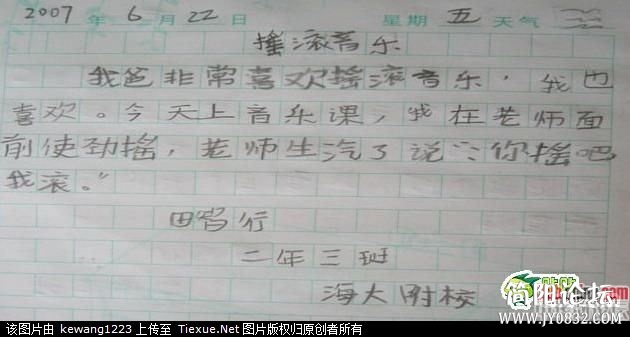 2007 年 6 月 22 日 星期 五 天气
摇滚音乐
我爸非常喜欢摇滚音乐，我也
喜欢。今天上音乐课，我在老师面
前使劲摇，老师生汽了说：“你摇吧
我滚。”
二年三班
海大附校
简阳论坛
www.JY0832.com
该图片由 kewang1223 上传至 Tiexue.Net 图片版权归原创者所有